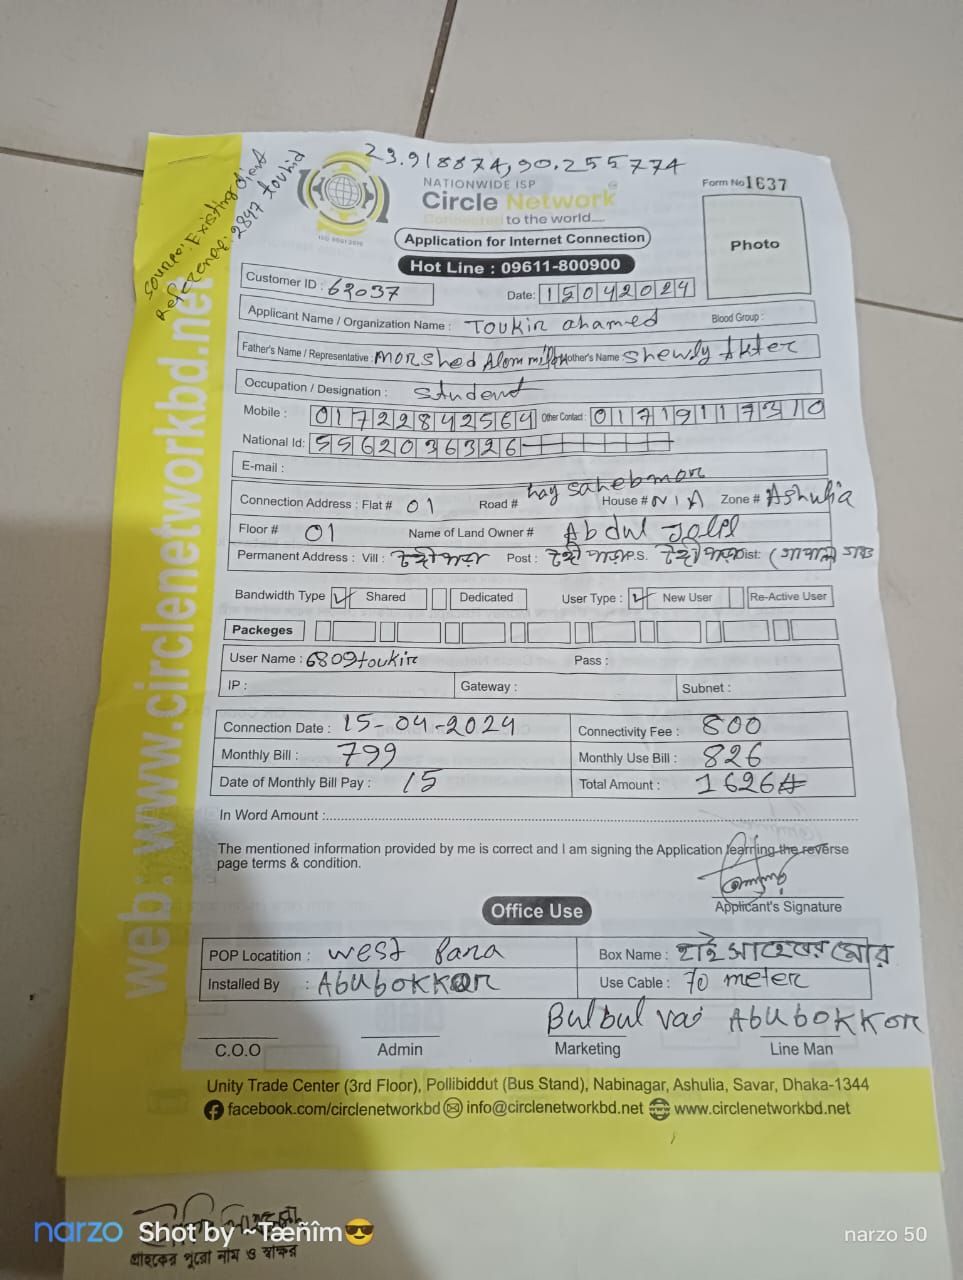 23.918874,90.255774
Source: Existing client
Reference: 2847 touhid
NATIONWIDE ISP
Circle Network
Connected to the world....
ISO 9001:2015
Form No 1637
Photo
Application for Internet Connection
Hot Line : 09611-800900
Customer ID : 62037
Date: 15042024
Applicant Name / Organization Name : Toukir ahamed Blood Group :
Father's Name / Representative : Morshed Alom Mother's Name : Shewly Akter
Occupation / Designation : Student
Mobile : 01722842564 Other Contact : 01719117310
National Id: 5562036326
E-mail :
Connection Address : Flat # 01 Road # hay sahebmor House # N/A Zone # Ashulia
Floor # 01 Name of Land Owner # Abdul
Permanent Address : Vill : Post : P.S. Dist:
Bandwidth Type Shared Dedicated User Type : New User Re-Active User
Packeges
User Name : 6809toukir Pass :
IP : Gateway : Subnet :
Connection Date : 15-04-2024 Connectivity Fee : 800
Monthly Bill : 799 Monthly Use Bill : 826
Date of Monthly Bill Pay : 15 Total Amount : 1626
In Word Amount :
The mentioned information provided by me is correct and I am signing the Application learning the reverse
page terms & condition.
Applicant's Signature
Office Use
POP Locatition : West Para Box Name : হাই সাহেবের মোর
Installed By : Abubokkor Use Cable : 70 meter
Bulbul vai Abubokkor
C.O.O Admin Marketing Line Man
Unity Trade Center (3rd Floor), Pollibiddut (Bus Stand), Nabinagar, Ashulia, Savar, Dhaka-1344
facebook.com/circlenetworkbd info@circlenetworkbd.net www.circlenetworkbd.net
web: www.circlenetworkbd.net
গ্রাহকের পুরো নাম ও স্বাক্ষর
narzo Shot by ~Tæñîm😎 narzo 50